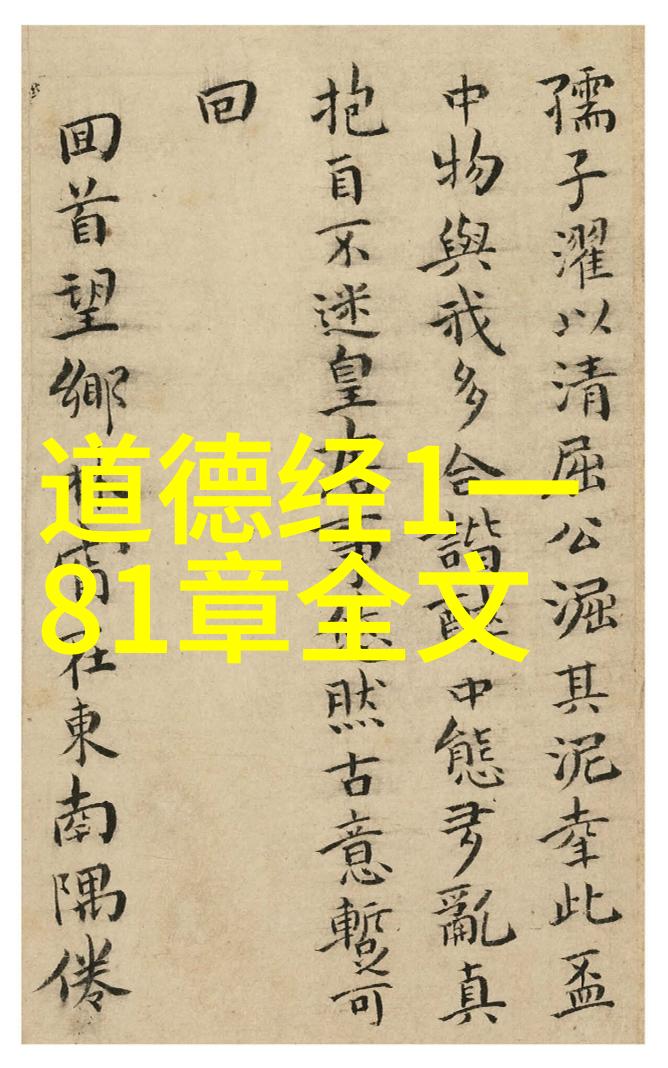 孺子濯以清屈公淈其泥幸此盃
中物與我多合諧醉中態多亂真
抱自不迷皇然古意暫可
回
回首望鄉在東南隅倦
道德经1一
81章全文